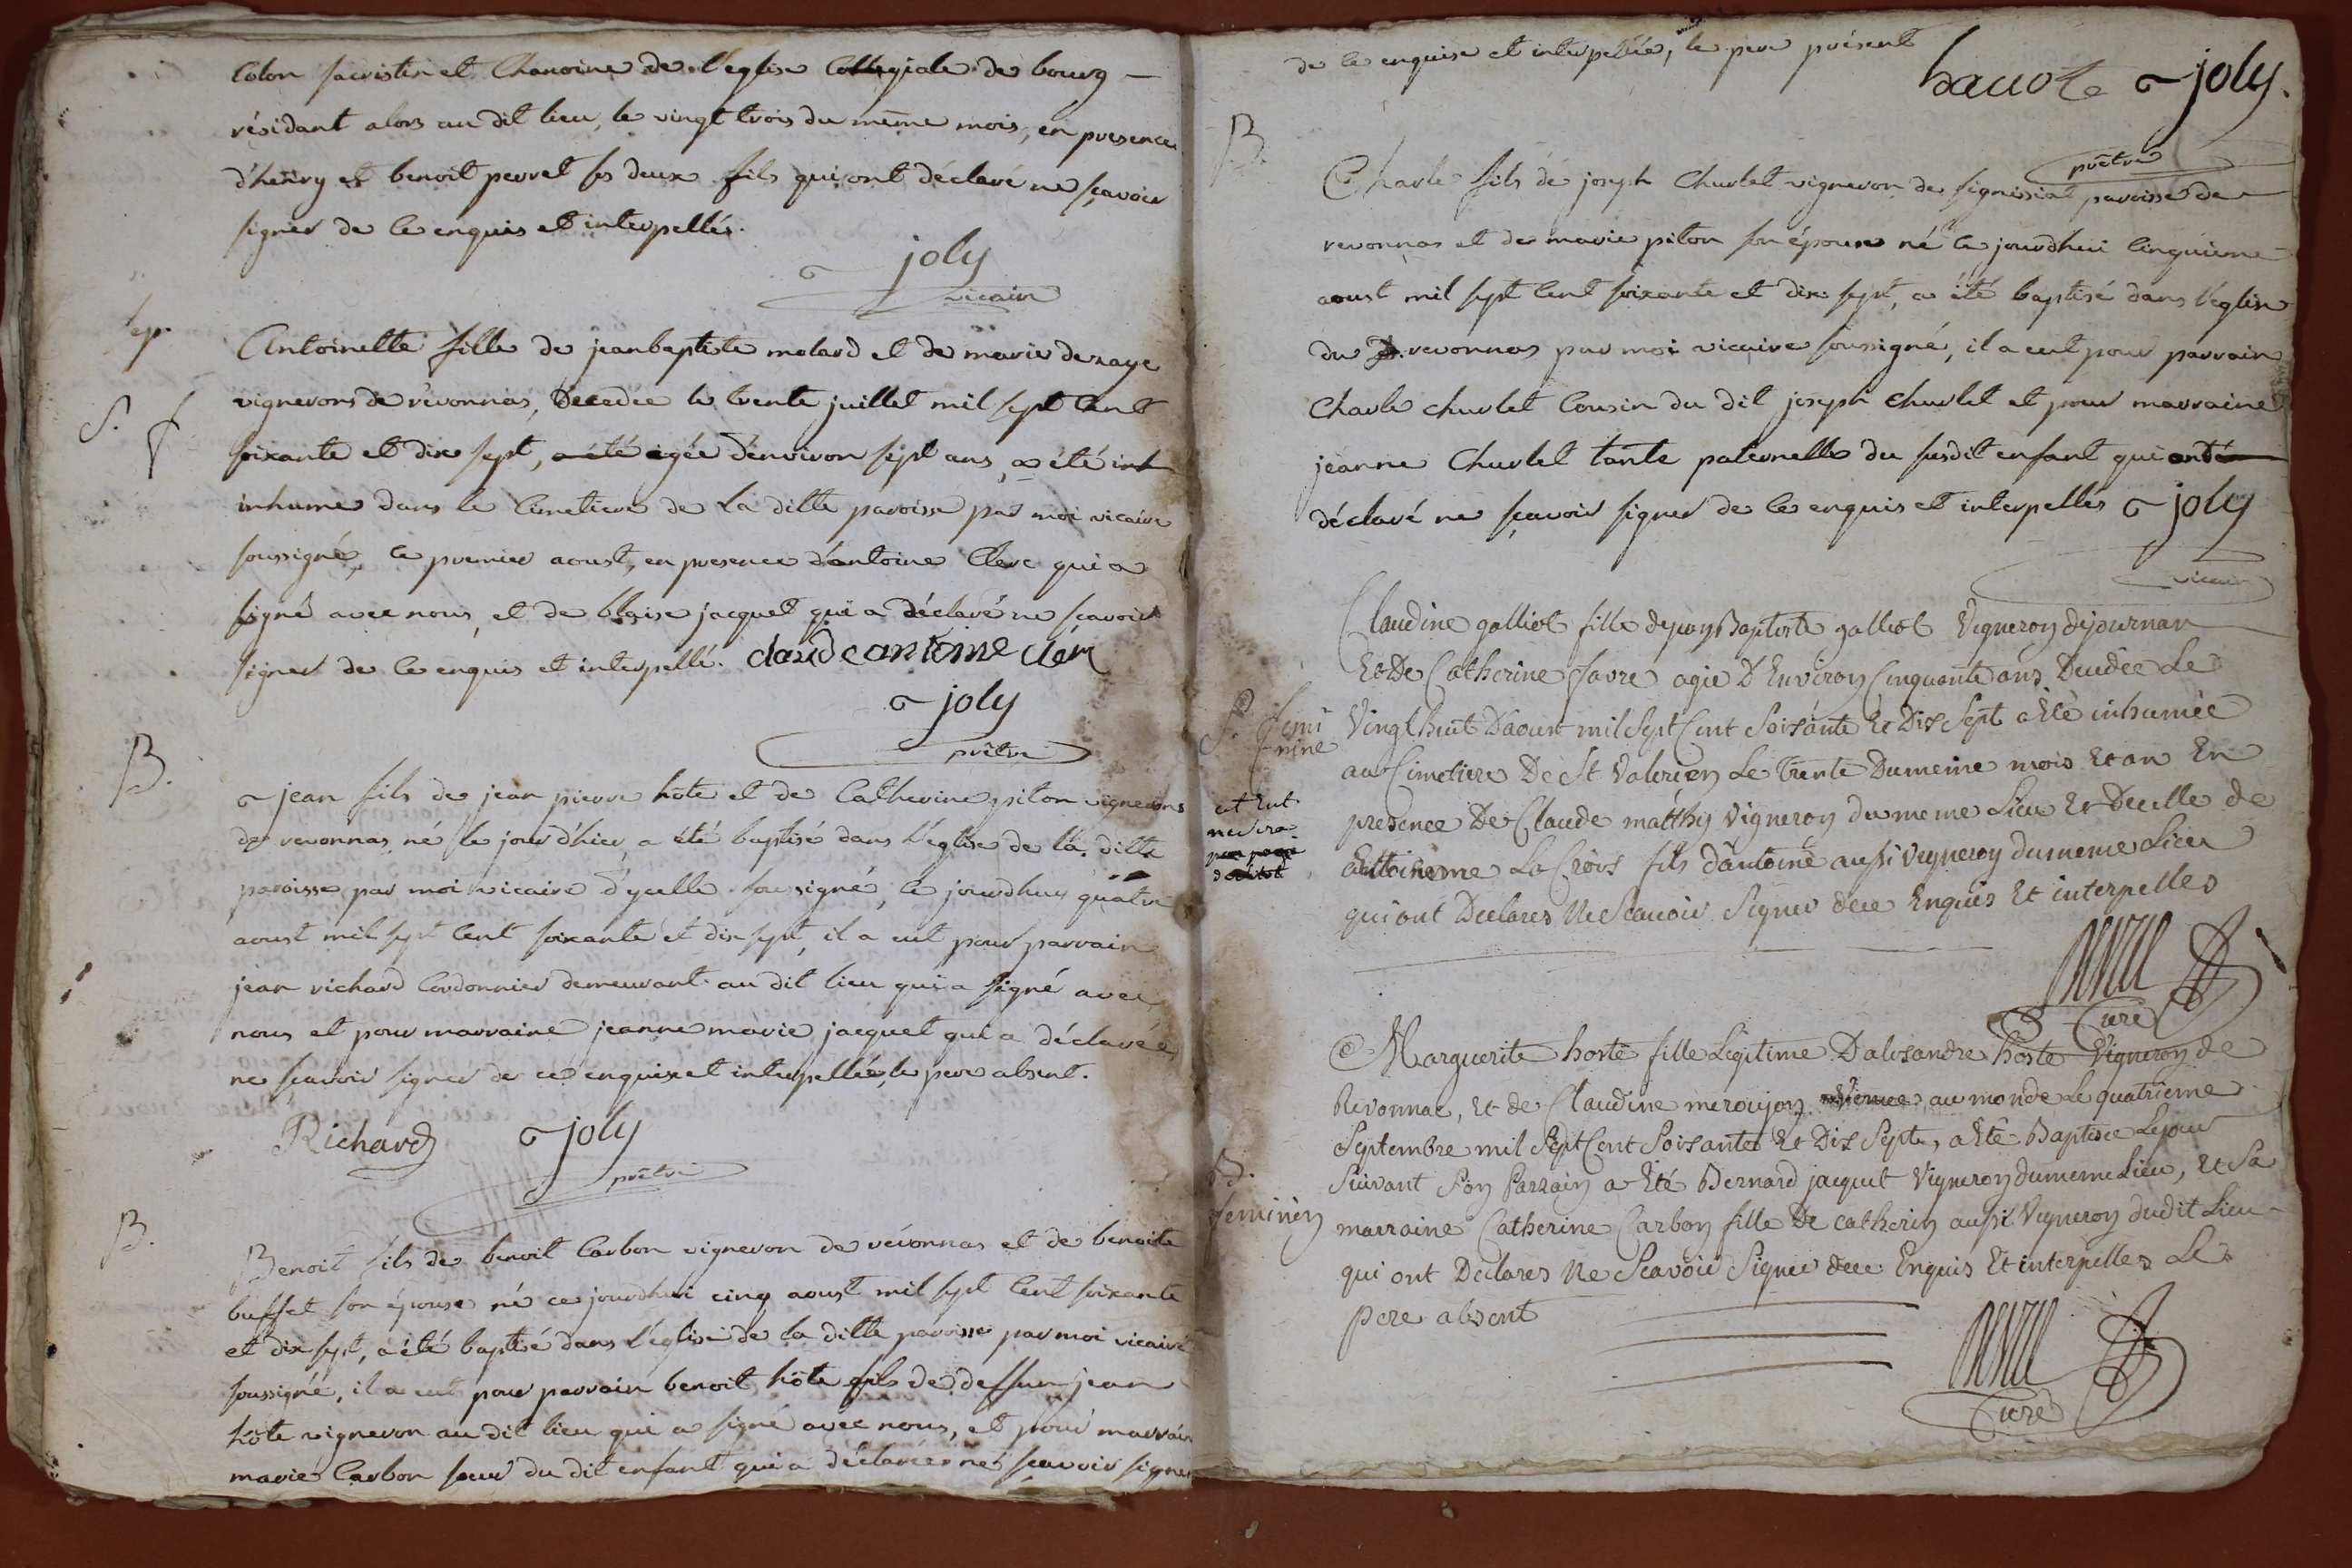 Colon sacristin et Chanoine de l'eglise Collegiale de bourg —
résidant alors au dit lieu, le vingt trois du même mois, en presence
d'henry et benoit perret ses deux fils qui ont déclaré ne sçavoir
signer de ce enquis et interpellés.
joly
vicaire
Sep.
Antoinette fille de jeanbaptiste molard et de marie deraye
S. f
vignerons de révonnas, Decedée le trente juillet mil sept Cent
soixante et dix sept, a été agée d'environ sept ans, a été inh
inhumé dans le Cimetiere de la ditte paroisse par moi vicaire
soussigné, le premier aoust, en presence d'antoine Clerc qui a
signé avec nous, et de blaise jacquet qui a déclaré ne sçavoir
signer de ce enquis et interpellé. claude antoine clerc
joly
prêtre
B.
jean fils de jean pierre hôte et de Catherine piton vignerons
de revonnas né le jour d'hier, a été baptisé dans l'église de la ditte
paroisse par moi vicaire d'ycelle soussigné, ce jourdhuy quatre
aoust mil sept Cent soixante et dix sept, il a eut pour parrain
jean richard Cordonnier demeurant au dit lieu qui a signé avec
nous et pour marraine jeanne marie jacquet qui a déclarée
ne sçavoir signer de ce enquise et interpellée, le pere absent.
Richard joly
prêtre
B.
Benoit fils de benoit Carbon vigneron de révonnas et de benoite
buffet son épouse né ce jourdhui cinq aoust mil sept Cent soixante
et dix sept, a été baptisé dans l'église de la ditte paroisse par moi vicaire
soussigné, il a eut pour parrain benoit hôte fils de deffun jean
hôte vigneron au dit lieu qui a signé avec nous, et pour marraine
marie Carbon soeur du dit enfant qui a déclarée ne sçavoir signer
de ce enquise et interpellée, le pere présent
joly.
prêtre
B.
Charle fils de joseph Churlet vigneron de signissiat paroisse de
revonnas et de marie piton son épouse né ce jourdhui Cinquieme
aoust mil sept Cent soixante et dix sept, a été baptisé dans l'eglise
du revonnas par moi vicaire soussigné, il a eut pour parrain
Charle churlet Cousin du dit joseph churlet et pour marraine
jeanne Churlet tante paternelle du susdit enfant qui ont
déclaré ne sçavoir signer de ce enquis et interpellés joly
vicaire
Claudine galliot fille de jean Baptiste galliot Vigneron de journan
Et De Catherine favre agée D'Environ Cinquante ans Decedée Le
S. femi
nine
Vingt huit D'aoust mil Sept Cent Soixante Et Dix Sept a Eté inhumée
au Cimetiere De St Valerien Le Trente Du meme mois Et an En
presence De Claude matthy Vigneron du meme Lieu Et De celle de
La Croix fils d'antoine aussi vigneron du meme Lieu
qui ont Declares Ne Scavoir Signer de ce Enquis Et interpelles
Curé
Marguerite hoste fille Legitime D'alexandre hoste Vigneron de
Revonnas, Et de Claudine meroujon Venue au monde Le quatrieme
Septembre mil Sept Cent Soixante Et Dix Septe, a Eté Baptisée Le jour
B.
feminin
Suivant Son Parrain a Eté Bernard jacquet Vigneron du meme Lieu, Et Sa
marraine Catherine Carbon fille De catherin aussi Vigneron dudit Lieu
qui ont Declares Ne Scavoir Signer de ce Enquis Et interpelles Le
pere absent
Curé